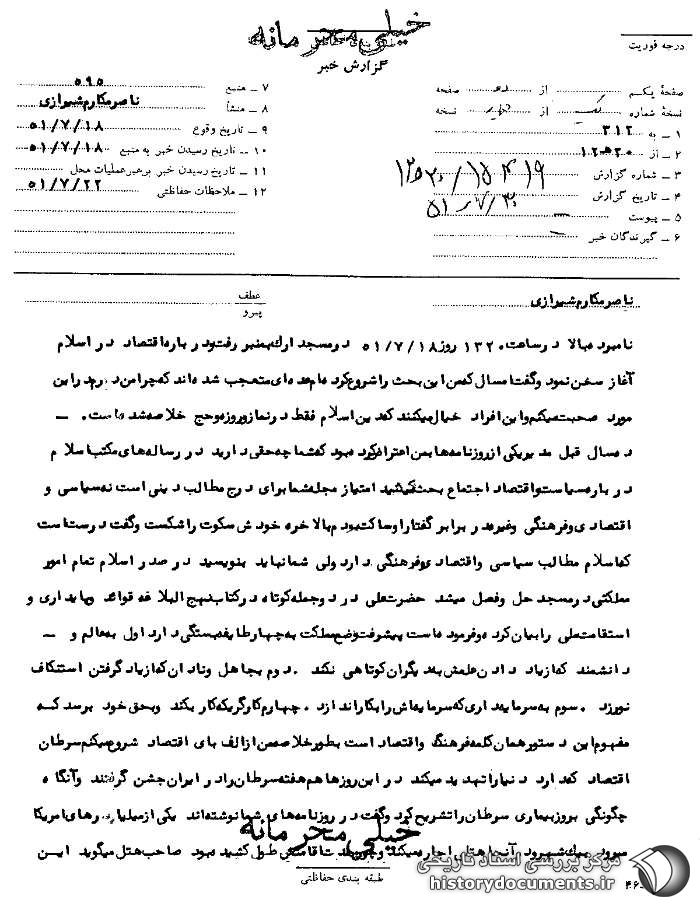 خیلی محرمانه
گزارش خبر
درجه فوریت
صفحهٔ یکم از دو صفحه
نسخهٔ شماره یک از نسخه
۱ ـ به ۳۱۲
۲ ـ از ۲۰ ه ۱۲
۳ ـ شماره گزارش ۱۵۴۱۹ / ۲۰ ه ۱۲
۴ ـ تاریخ گزارش ۵۱/۷/۳۰
۵ ـ پیوست
۶ ـ گیرندگان خبر
۷ ـ منبع ۵۹۵
۸ ـ منشأ ناصر مکارم شیرازی
۹ ـ تاریخ وقوع ۵۱/۷/۱۸
۱۰ ـ تاریخ رسیدن خبر به منبع ۵۱/۷/۱۸
۱۱ ـ تاریخ رسیدن خبر به رهبر عملیات محل
۱۲ ـ ملاحظات حفاظتی ۵۱/۷/۲۲
ناصر مکارم شیرازی
عطف
پیرو
نامبرده بالا در ساعت ۱۳۲۰ روز ۵۱/۷/۱۸ در مسجد ارک بمنبر رفت و درباره اقتصاد در اسلام
آغاز سخن نمود و گفت امسال که من این بحث را شروع کرده‌ام عده‌ای متعجب شده‌اند که چرا من در این
مورد صحبت میکنم و این افراد خیال میکنند که دین اسلام فقط در نماز و روزه و حج خلاصه شده است . ـ
ده سال قبل مدیر یکی از روزنامه‌ها بمن اعتراف کرده بود که شما چه حقی دارید در رساله‌های مکتب اسلام
درباره سیاست و اقتصاد اجتماع بحث میکنید امتیاز مجله شما برای درج مطالب دینی است نه سیاسی و
اقتصادی و فرهنگی و غیره و در برابر گفتار او ساکت بودم بالاخره خودش سکوت را شکست و گفت درست است
که اسلام مطالب سیاسی و اقتصادی و فرهنگی دارد ولی شما نباید بنویسید در صدر اسلام تمام امور
مملکتی در مسجد حل و فصل میشد حضرت علی در دو جمله کوتاه در کتاب نهج البلاغه قواعد و پایداری و
استقامت ملی را بیان کرده و فرموده است پیشرفت وضع مملکت به چهار طایفه بستگی دارد اول به عالم و ـ
دانشمند که از یاد دادن علمش به دیگران کوتاهی نکند . دوم بجاهل و نادان که از یاد گرفتن استنکاف
نورزد . سوم به سرمایه‌داری که سرمایه‌اش را بکار اندازد . چهارم کارگریکه کار بکند و بحق خود برسد کـه
مفهوم این دستور همان کلمه فرهنگ و اقتصاد است بطور خلاصه من از الف بای اقتصاد شروع میکنم سرطان
اقتصاد که دارد دنیا را تهدید میکند در این روزها هم هفته سرطان را در ایران جشن گرفتند و آنگاه
چگونگی بروز بیماری سرطان را تشریح کرد و گفت در روزنامه‌های شما نوشته‌اند یکی از میلیاردرهای امریکا
میرود به یک شهر و در آنجا هتلی اجاره میکند و چند مدت اقامتش طول کشیده بود صاحب هتل میگوید این
خیلی محرمانه
طبقه بندی حفاظتی
مرکز بررسی اسناد تاریخی
historydocuments.ir